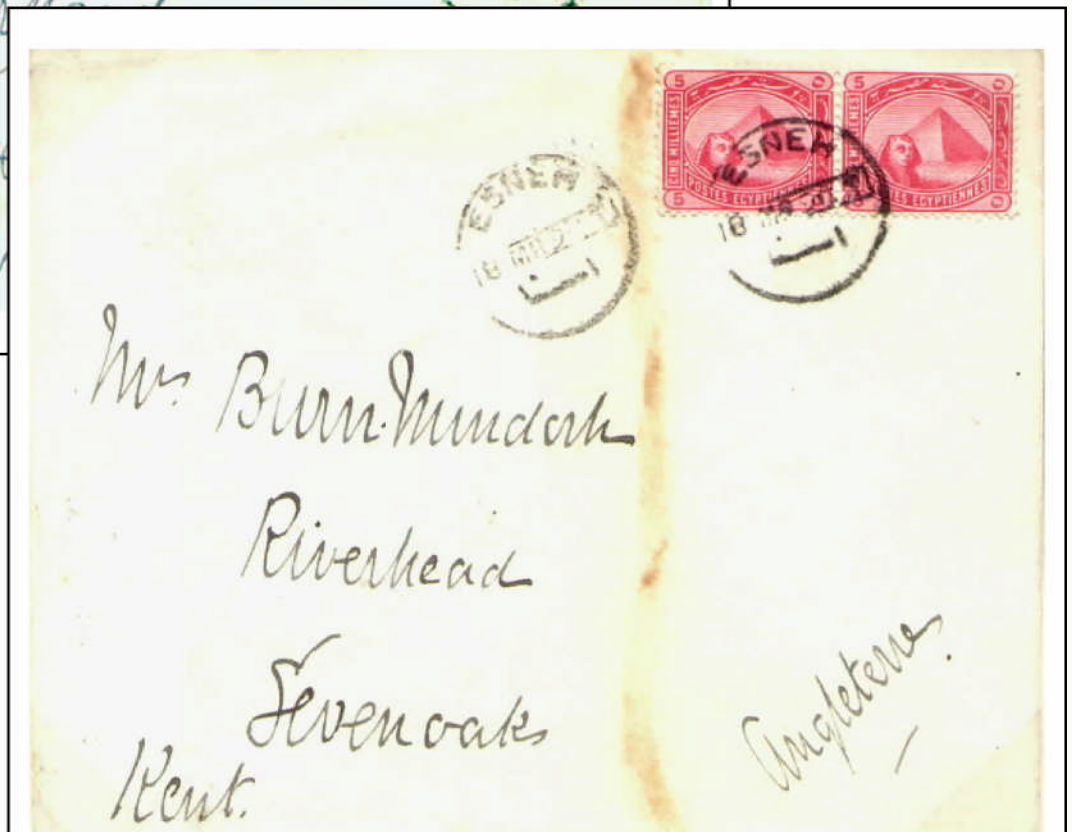 5 5
CINQ MILLIEMES
POSTES EGYPTIENNES
5
5
MILLIEMES
POSTES EGYPTIENNES
ESNEH
18 MR
اسنا
ESNEH
18 MR
اسنا
Mrs Burn-Murdoch
Riverhead
Sevenoaks
Kent.
Angleterre.